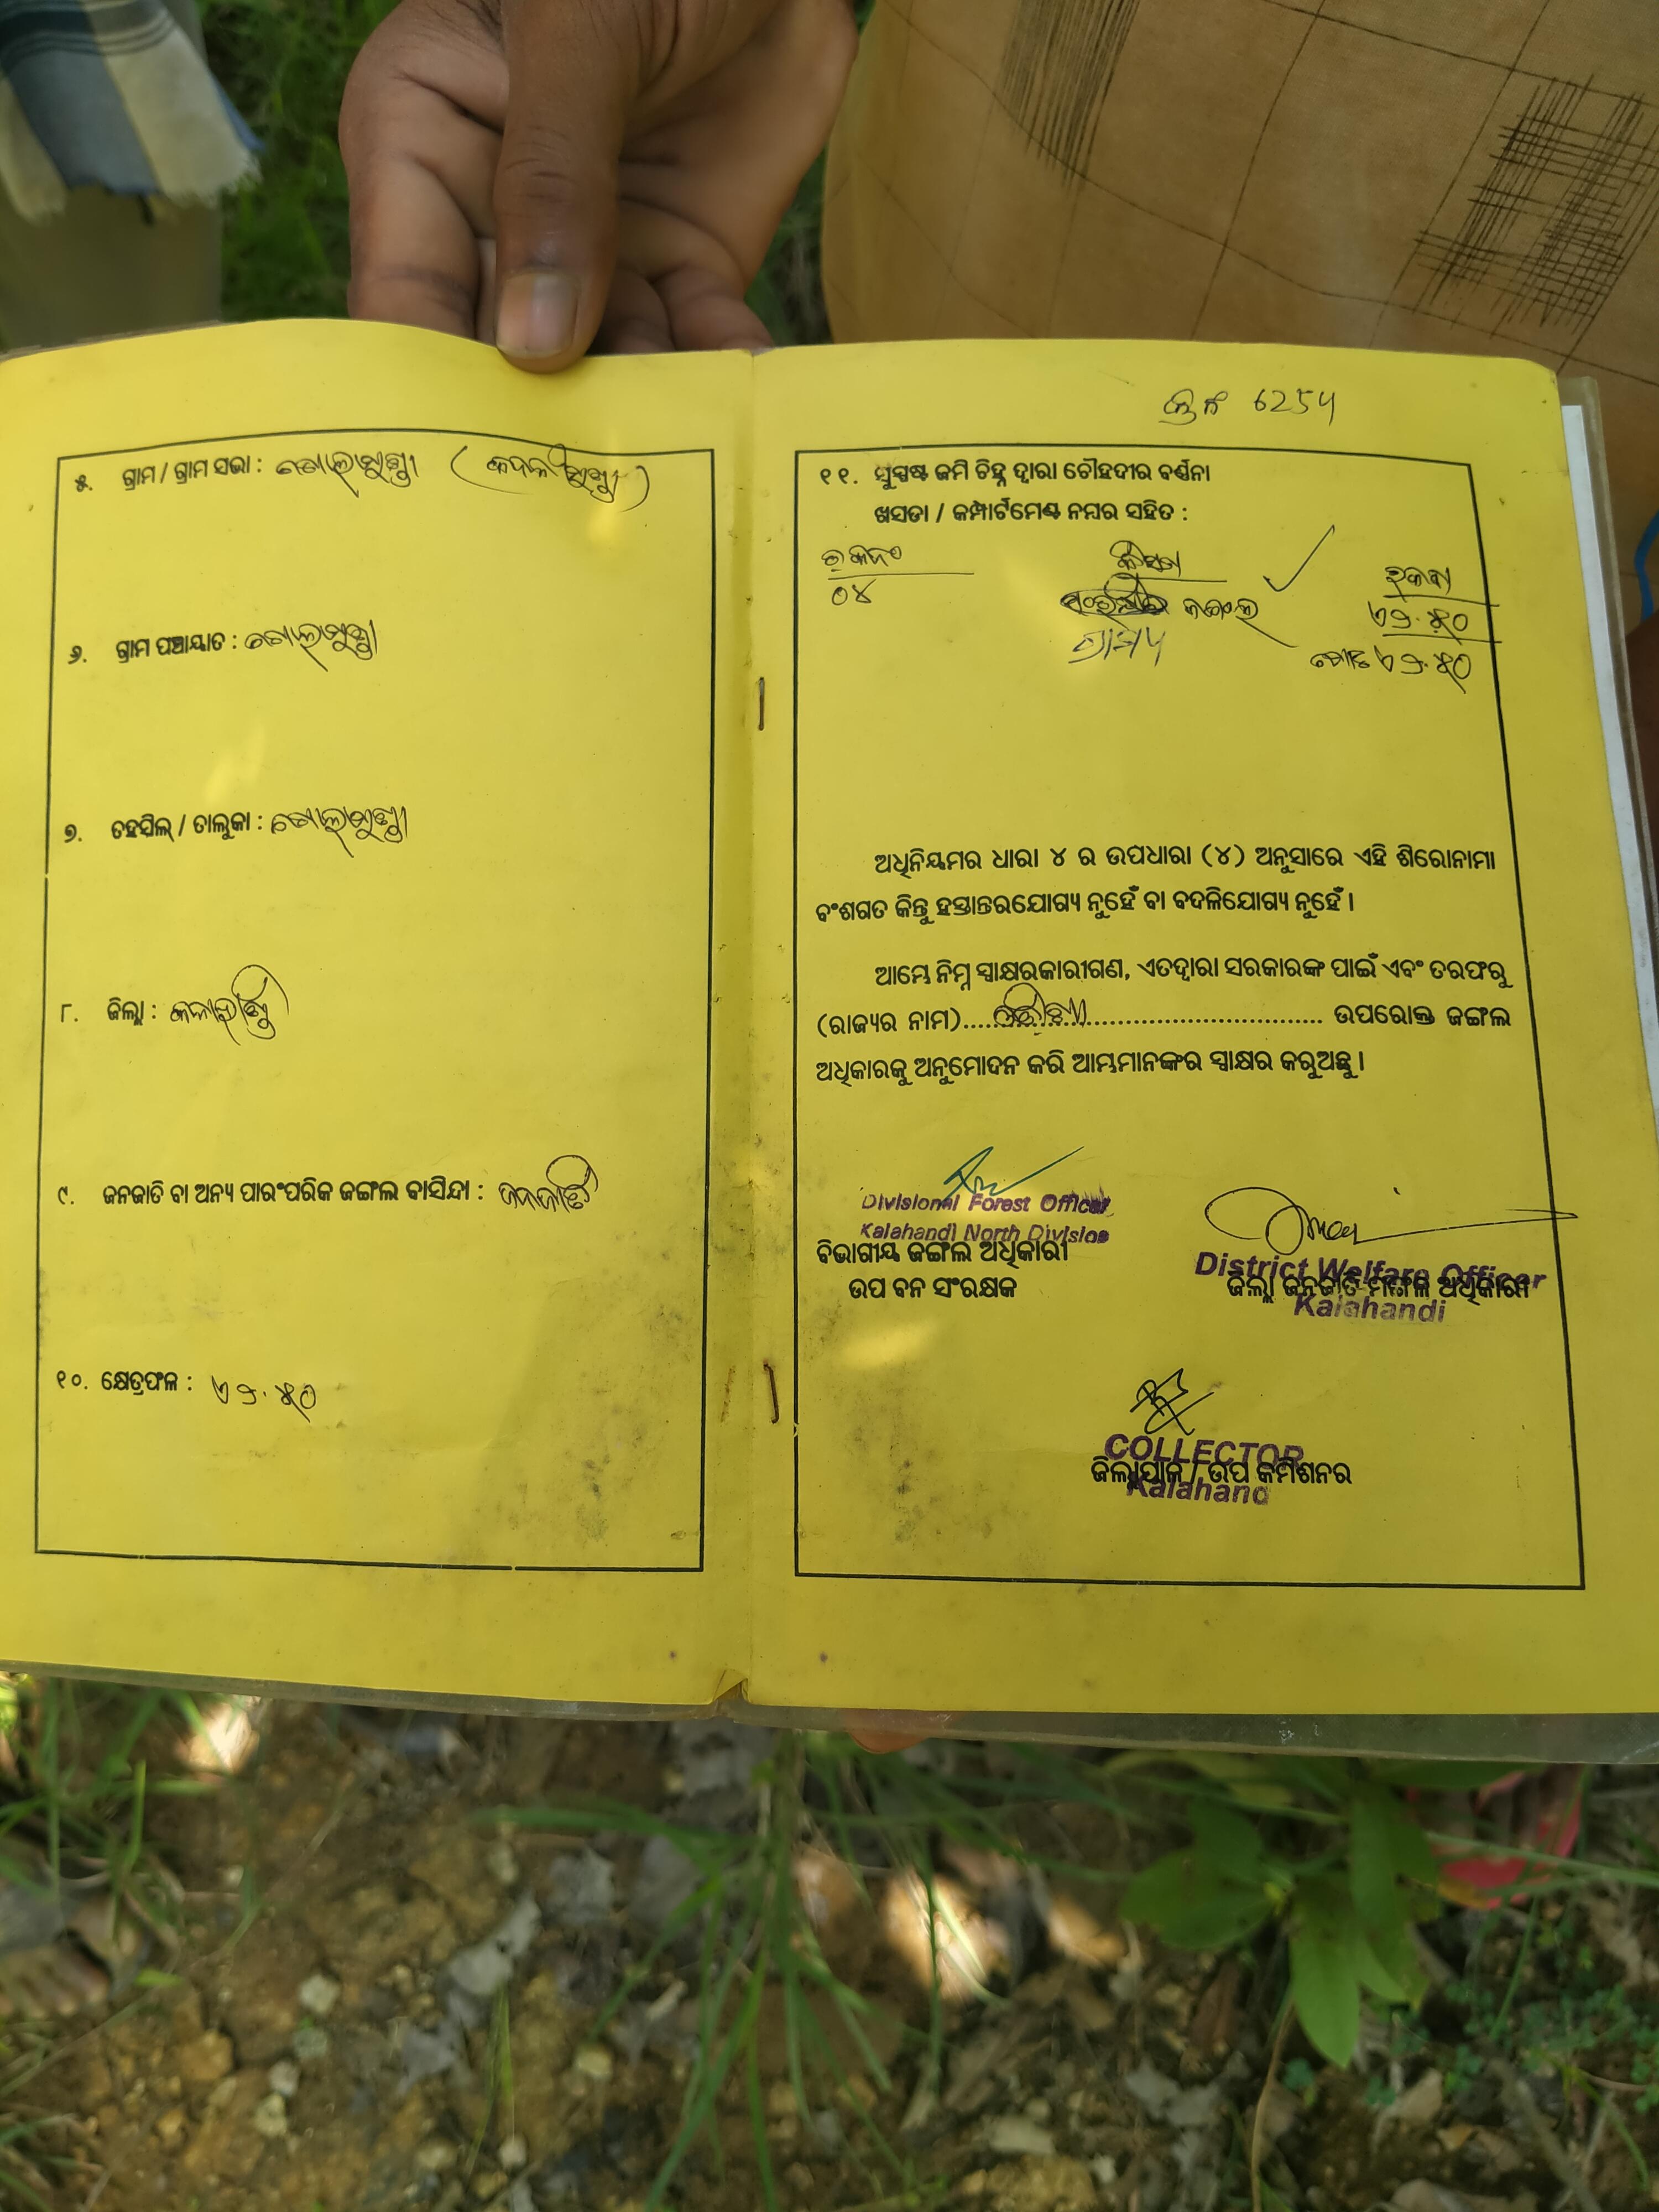 ୫. ଗ୍ରାମ / ଗ୍ରାମ ସଭା : ଗୋଲାମୁଣ୍ଡା (କଦଳୀମୁଣ୍ଡା)
୬. ଗ୍ରାମ ପଞ୍ଚାୟାତ : ଗୋଲାମୁଣ୍ଡା
୭. ତହସିଲ୍ / ତାଲୁକା : ଗୋଲାମୁଣ୍ଡା
୮. ଜିଲ୍ଲା : କଳାହାଣ୍ଡି
୯. ଜନଜାତି ବା ଅନ୍ୟ ପାରଂପରିକ ଜଙ୍ଗଲ ବାସିନ୍ଦା : ଜନଜାତି
୧୦. କ୍ଷେତ୍ରଫଳ : ୧୨.୫୦
6254
୧୧. ସୁସ୍ପଷ୍ଟ ଜମି ଚିହ୍ନ ଦ୍ୱାରା ଚୌହଦୀର ବର୍ଣ୍ଣନା
ଖସଡା / କମ୍ପାର୍ଟମେଣ୍ଟ ନମ୍ବର ସହିତ :
କିସମ ରକବା
୦୪ ଜଙ୍ଗଲ
ଗ୍ରାମ୍ୟ ମୋଟ
ଅଧିନିୟମର ଧାରା ୪ ର ଉପଧାରା (୪) ଅନୁସାରେ ଏହି ଶିରୋନାମା
ବଂଶଗତ କିନ୍ତୁ ହସ୍ତାନ୍ତରଯୋଗ୍ୟ ନୁହେଁ ବା ବଦଳିଯୋଗ୍ୟ ନୁହେଁ ।
ଆମ୍ଭେ ନିମ୍ନ ସ୍ୱାକ୍ଷରକାରୀଗଣ, ଏତଦ୍ୱାରା ସରକାରଙ୍କ ପାଇଁ ଏବଂ ତରଫରୁ
(ରାଜ୍ୟର ନାମ)..... ଓଡିଶା ..... ଉପରୋକ୍ତ ଜଙ୍ଗଲ
ଅଧିକାରକୁ ଅନୁମୋଦନ କରି ଆମ୍ଭମାନଙ୍କର ସ୍ୱାକ୍ଷର କରୁଅଛୁ ।
Divisional Forest Officer
Kalahandi North Division
ବିଭାଗୀୟ ଜଙ୍ଗଲ ଅଧିକାରୀ
ଉପ ବନ ସଂରକ୍ଷକ
District Welfare Officer
ଜିଲ୍ଲା ଜନଜାତି ମଙ୍ଗଳ ଅଧିକାରୀ
Kalahandi
COLLECTOR
ଜିଲ୍ଲାପାଳ / ଉପ କମିଶନର
Kalahand